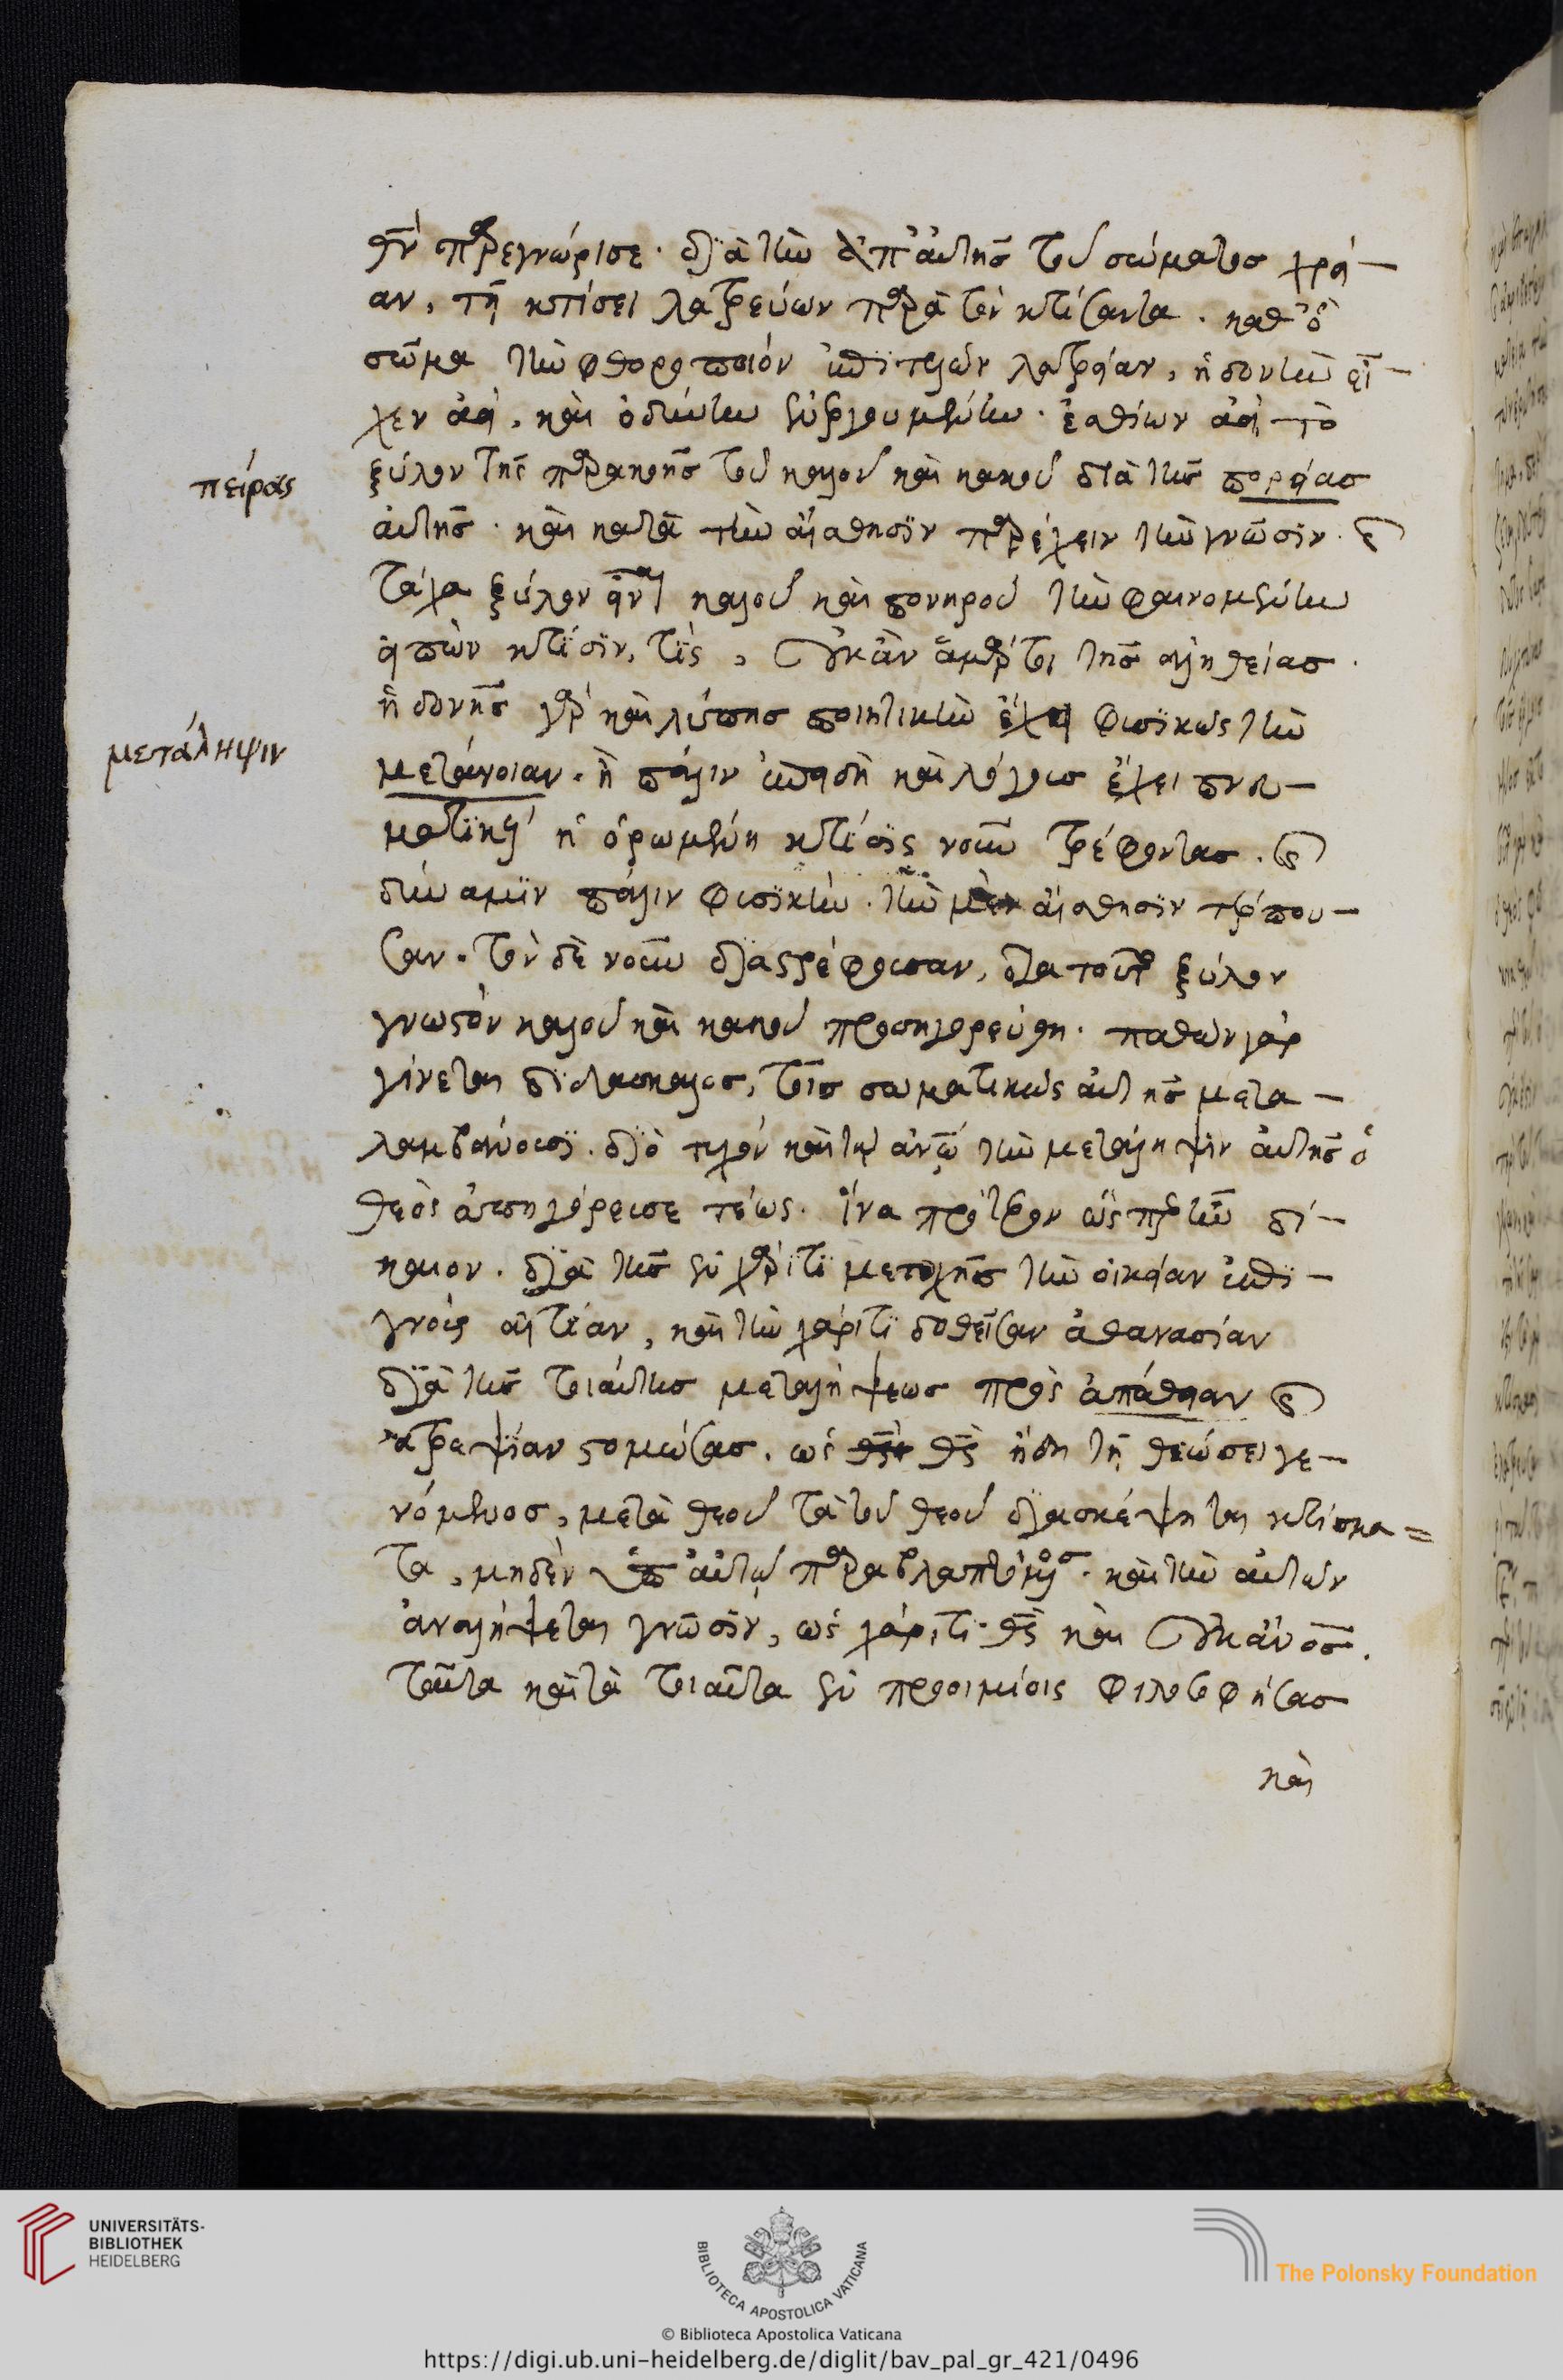 θν̅ παρεγνώρισε· διὰ τὴν ἀπ' αὐτῆς τοῦ σώματος χρεί-
αν, τῇ κτίσει λατρεύων παρὰ τὸν κτίσαντα. καθ' ὃ
σῶμα τὴν φθοροποιὸν ἐπιτελῶν λατρείαν, ἡδονὴν εἶ-
χεν ἀεὶ, καὶ ὀδύνην ἐνεργουμένην. ἐσθίων ἀεὶ τὸ
πείρας
ξύλον τῆς παρακοῆς τοῦ καλοῦ καὶ κακοῦ διὰ τῆς πορείας
αὐτῆς. καὶ κατὰ τὴν αἴσθησιν παρέχειν τὴν γνῶσιν. καὶ
τάχα ξύλον εἶναι καλοῦ καὶ πονηροῦ τὴν φαινομένην
εἰπὼν κτίσιν, τὶς, οὐκ ἂν ἁμάρτοι τῆς ἀληθείας.
ἡδονῆς γὰρ καὶ λύπης ποιητικὴν ἔχει φυσικῶς τὴν
μετάληψιν
μετάνοιαν. ἢ πάλιν ἐπειδὴ καὶ λόγους ἔχει πνευ-
ματικοὺς ἡ ὁρωμένη κτίσις νοῦν τρέφοντας. καὶ
δύναμιν πάλιν φυσικὴν. τὴν μὲν αἴσθησιν τέρπου-
σαν. τὸν δὲ νοῦν διαστρέφουσαν, διὰ τοῦτο ξύλον
γνωστὸν καλοῦ καὶ κακοῦ προσηγορεύθη. παθῶν γὰρ
γίνεται διδάσκαλος, τοῖς σωματικῶς αὐτῆς μετα-
λαμβάνουσι. διὸ τυχὸν καὶ τῷ ἀνω̅ τὴν μετάληψιν αὐτῆς ὁ
θεὸς ἀπηγόρευσε τέως. ἵνα πρότερον ὥσπερ ἦν δί-
καιον. διὰ τῆς ἐν χάριτι μετοχῆς τὴν οἰκείαν ἐπι-
γνοὺς αἰτίαν, καὶ τὴν χάριτι δοθεῖσαν ἀθανασίαν
διὰ τῆς τοιαύτης μεταλήψεως πρὸς ἀπάθειαν καὶ
ἀτρεψίαν στομώσας. ὡς θς̅ ἤδη τῇ θεώσει γε-
νόμενος, μετὰ θεοῦ τὰ τοῦ θεοῦ διασκέψηται κτίσμα=
τα, μηδὲν ὑπ' αὐτῶν παραβλαπτόμενος. καὶ τὴν αὐτῶν
ἀναλήψεται γνῶσιν, ὡς χάριτι θς̅ καὶ οὐκ ἀνο̅ς̅.
ταῦτα καὶ τὰ τοιαῦτα ἐν προοιμίοις φιλοσοφήσας
καὶ
UNIVERSITÄTS-
BIBLIOTHEK
HEIDELBERG
BIBLIOTECA APOSTOLICA VATICANA
The Polonsky Foundation
© Biblioteca Apostolica Vaticana
https://digi.ub.uni-heidelberg.de/diglit/bav_pal_gr_421/0496